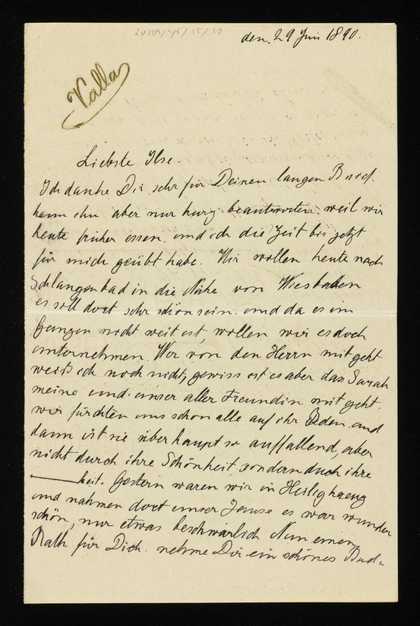 den 29 Juni 1890.
Valla
Liebste Ilse.
Ich danke Dir sehr für Deinen langen Brief,
kann ihn aber nur kurz beantworten, weil wir
heute früher essen und ich die Zeit bis jetzt
für mich geübt habe. Wir wollen heute nach
Schlangenbad in die Nähe von Wiesbaden
es soll dort sehr schön sein und da es im
Ganzen nicht weit ist, wollen wir es doch
unternehmen. Wer von den Herrn mit geht
weiß ich noch nicht, gewiss ist es aber das Sarah
meine und unser aller Freundin mit geht.
wir fürchten uns schon alle auf ihr Reden und
dann ist sie überhaupt so auffallend, aber
nicht durch ihre Schönheit, sondern durch ihre
——heit. Gestern waren wir in Heiligkreuz
und nahmen dort unser Jause es war wunder
schön, nur etwas beschwerlich. Nun einen
Rath für Dich. nehme Dir ein schönes